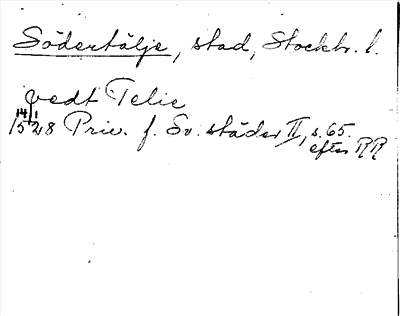 Södertälje, stad, Stockh. l.
vedt Telie
14/1 1528 Priv. f. Sv. städer II, s. 65
efter RR